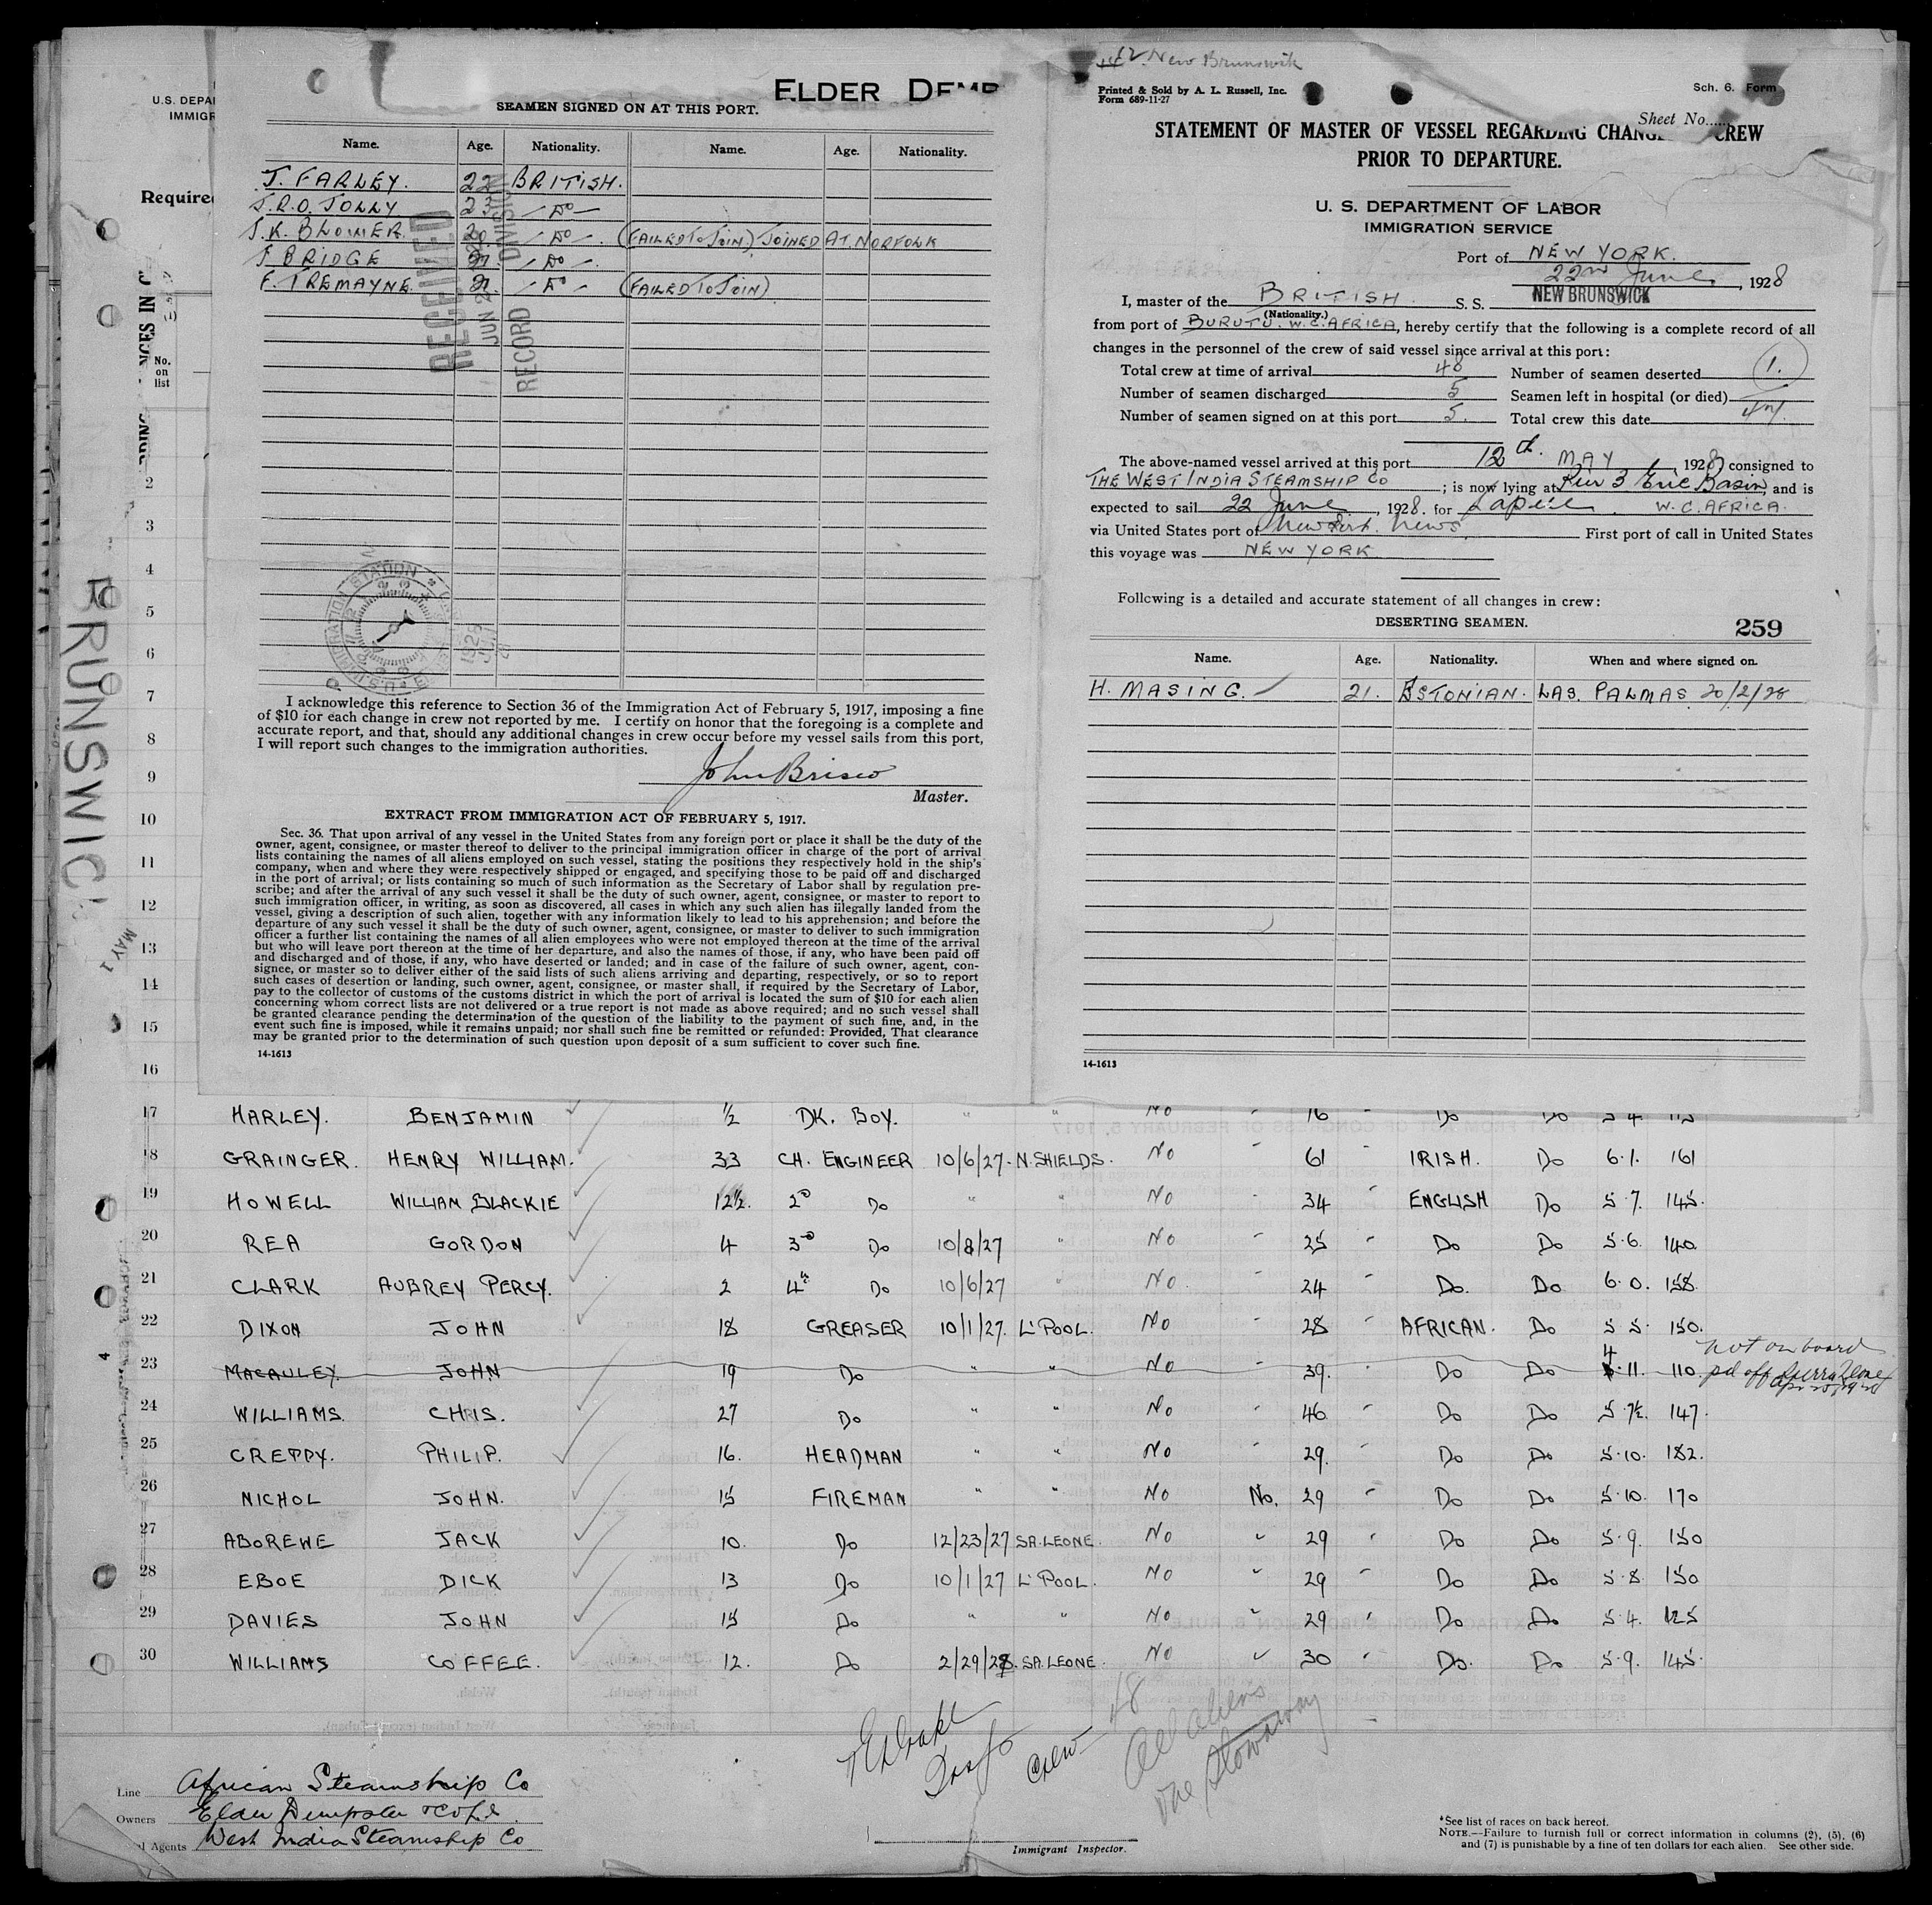 12 New Brunswick
U.S. DEPA
IMMIGR
Require
No.
on
list
ELDER DEMP
SEAMEN SIGNED ON AT THIS PORT.
Name. Age. Nationality. Name. Age. Nationality.
J. FARLEY. 22 BRITISH.
J.R.O. JOLLY 23 - Do -
J.K. BLOMER. 20 - Do - (FAILED TO JOIN) JOINED AT NORFOLK
J BRIDGE 21. - Do -
F. TREMAYNE. 21. - Do - (FAILED TO JOIN)
RECEIVED
JUN
RECORD DIVISION
IMMIGRATION STATION
I acknowledge this reference to Section 36 of the Immigration Act of February 5, 1917, imposing a fine
of $10 for each change in crew not reported by me. I certify on honor that the foregoing is a complete and
accurate report, and that, should any additional changes in crew occur before my vessel sails from this port,
I will report such changes to the immigration authorities.
John Brisco
Master.
EXTRACT FROM IMMIGRATION ACT OF FEBRUARY 5, 1917.
Sec. 36. That upon arrival of any vessel in the United States from any foreign port or place it shall be the duty of the
owner, agent, consignee, or master thereof to deliver to the principal immigration officer in charge of the port of arrival
lists containing the names of all aliens employed on such vessel, stating the positions they respectively hold in the ship's
company, when and where they were respectively shipped or engaged, and specifying those to be paid off and discharged
in the port of arrival; or lists containing so much of such information as the Secretary of Labor shall by regulation pre-
scribe; and after the arrival of any such vessel it shall be the duty of such owner, agent, consignee, or master to report to
such immigration officer, in writing, as soon as discovered, all cases in which any such alien has illegally landed from the
vessel, giving a description of such alien, together with any information likely to lead to his apprehension; and before the
departure of any such vessel it shall be the duty of such owner, agent, consignee, or master to deliver to such immigration
officer a further list containing the names of all alien employees who were not employed thereon at the time of the arrival
but who will leave port thereon at the time of her departure, and also the names of those, if any, who have been paid off
and discharged and of those, if any, who have deserted or landed; and in case of the failure of such owner, agent, con-
signee, or master so to deliver either of the said lists of such aliens arriving and departing, respectively, or so to report
such cases of desertion or landing, such owner, agent, consignee, or master shall, if required by the Secretary of Labor,
pay to the collector of customs of the customs district in which the port of arrival is located the sum of $10 for each alien
concerning whom correct lists are not delivered or a true report is not made as above required; and no such vessel shall
be granted clearance pending the determination of the question of the liability to the payment of such fine, and, in the
event such fine is imposed, while it remains unpaid; nor shall such fine be remitted or refunded: Provided, That clearance
may be granted prior to the determination of such question upon deposit of a sum sufficient to cover such fine.
14-1613
Printed & Sold by A. L. Russell, Inc.
Form 689-11-27
Sch. 6. Form
Sheet No.
STATEMENT OF MASTER OF VESSEL REGARDING CHANG CREW
PRIOR TO DEPARTURE.
U. S. DEPARTMENT OF LABOR
IMMIGRATION SERVICE
Port of NEW YORK.
22nd June, 1928
I, master of the BRITISH S. S. NEW BRUNSWICK
(Nationality.)
from port of BURUTU. W.C. AFRICA, hereby certify that the following is a complete record of all
changes in the personnel of the crew of said vessel since arrival at this port:
Total crew at time of arrival 48 Number of seamen deserted 1.
Number of seamen discharged 5 Seamen left in hospital (or died)
Number of seamen signed on at this port 5. Total crew this date 47.
The above-named vessel arrived at this port 12th. MAY, 1928, consigned to
THE WEST INDIA STEAMSHIP Co; is now lying at Pier 3 Erie Basin, and is
expected to sail 22 June, 1928. for W. C. AFRICA.
via United States port of Newport News First port of call in United States
this voyage was NEW YORK
Following is a detailed and accurate statement of all changes in crew:
DESERTING SEAMEN. 259
Name. Age. Nationality. When and where signed on.
H. MASING. 21. ESTONIAN. LAS. PALMAS. 20/2/28
14-1613
BRUNSWIC
MAY 1
2
3
4
5
6
7
8
9
10
11
12
13
14
15
16
17 HARLEY. BENJAMIN 1/2 DK. BOY. " " No " 16 " Do Do 5 4 115
18 GRAINGER. HENRY WILLIAM. 33 CH. ENGINEER 10/6/27. N. SHIELDS. No " 61 IRISH. Do 6.1. 161
19 HOWELL WILLIAM BLACKIE 12½. 2D Do " " No " 34 " ENGLISH Do 5.7. 145.
20 REA GORDON 4 3D Do 10/8/27 " No " 25 " Do Do 5.6. 140.
21 CLARK AUBREY PERCY. 2 4th Do 10/6/27 " No. " 24 " Do. Do 6.0. 158.
22 DIXON JOHN 18 GREASER 10/1/27. L'POOL. No " 28 " AFRICAN. Do 5 5. 150.
23 MACAULEY. JOHN 19 Do " " No " 39. " Do Do 4.11. 110. not on board
pd off Sierra Leone
24 WILLIAMS. CHRIS. 27 Do " " No " 46 " Do Do 5.7½. 147.
25 CREPPY. PHILIP. 16. HEADMAN " " No " 29. " Do Do 5.10. 182.
26 NICHOL JOHN. 15 FIREMAN " " No No. 29 " Do Do 5.10. 170
27 ABOREWE JACK 10. Do 12/23/27 SA. LEONE. No " 29 " Do Do 5.9. 150
28 EBOE DICK 13 Do 10/1/27 L'POOL. No " 29 Do Do 5.8. 150
29 DAVIES JOHN 15 Do " " No " 29 " Do Do 5.4. 125
30 WILLIAMS COFFEE. 12. Do 2/29/28. SA. LEONE. No " 30 " Do. Do 5.9. 145.
Crew 48
All aliens
one Stowaway
Line African Steamship Co
Owners Elder Dempster & Co Ld.
l Agents West India Steamship Co
Immigrant Inspector.
*See list of races on back hereof.
NOTE.—Failure to furnish full or correct information in columns (2), (5), (6)
and (7) is punishable by a fine of ten dollars for each alien. See other side.